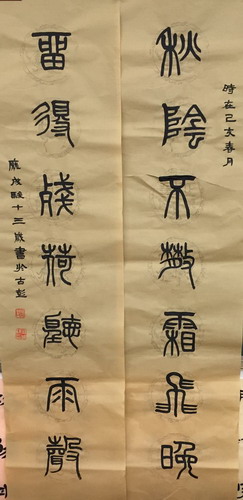 時在己亥春月
秋陰不散霜飛晚
留得殘荷聽雨聲
十三歲書於古彭